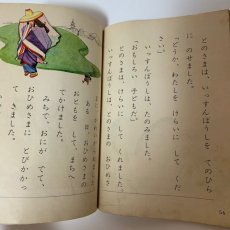 とのさまは、いっすんぼうしを てのひら
に のせました。
「どうか、わたしを けらいに して くだ
さい。」
いっすんぼうしは、たのみました。
「おもしろい 子どもだ。」
とのさまは、けらいに して くれました。
いっすんぼうしは、とのさまの おひめさ
ある 日、おひめさまの
おともを して、まちへ
でかけました。
みちで、おにが でて
きました。
おひめさまに とびかかっ